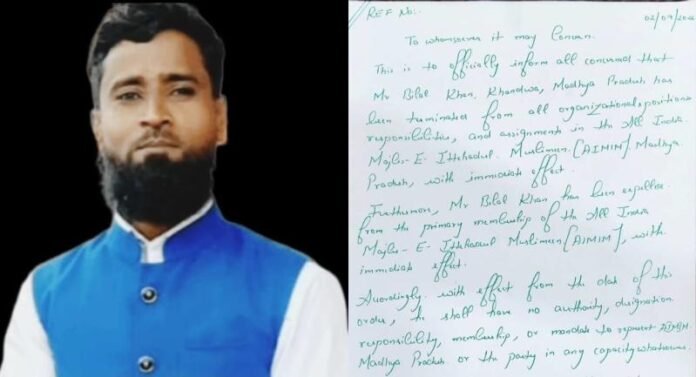 REF No:-
02/07/202
To whomsoever it may Concern.
This is to officially inform all concerned that
Mr Bilal Khan, Khandwa, Madhya Pradesh has
been terminated from all organizational positions
responsibilities, and assignments in the All India
Majlis-E-Ittehadul Muslimeen [AIMIM] Madhya
Pradesh, with immediate effect.
Furthermore, Mr Bilal Khan has been expelled
from the primary membership of the All India
Majlis-E-Ittehadul Muslimeen [AIMIM], with
immediate effect.
Accordingly, with effect from the date of this
order, he shall have no authority, designation
responsibility, membership, or mandate to represent AIMIM
Madhya Pradesh or the party in any capacity whatsoever.